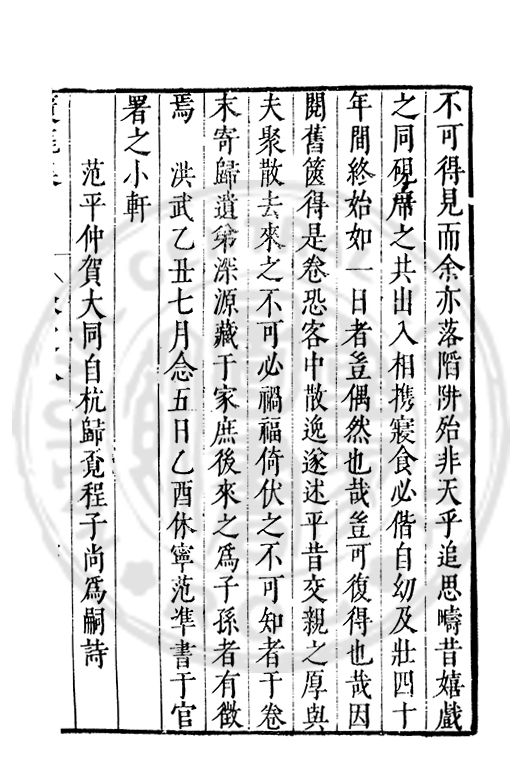 不可得見而余亦落陷阱殆非天乎追思疇昔嬉戲
之同硯席之共出入相携寢食必偕自幼及壯四十
年間終始如一日者豈偶然也哉豈可復得也哉因
閱舊篋得是卷恐客中散逸遂述平昔交親之厚與
夫聚散去來之不可必禍福倚伏之不可知者于卷
末寄歸遺弟深源藏于家庶後來之爲子孫者有徵
焉　洪武乙丑七月念五日乙酉休寧范準書于官
署之小軒
范平仲賀大同自杭歸覔程子尚爲嗣詩